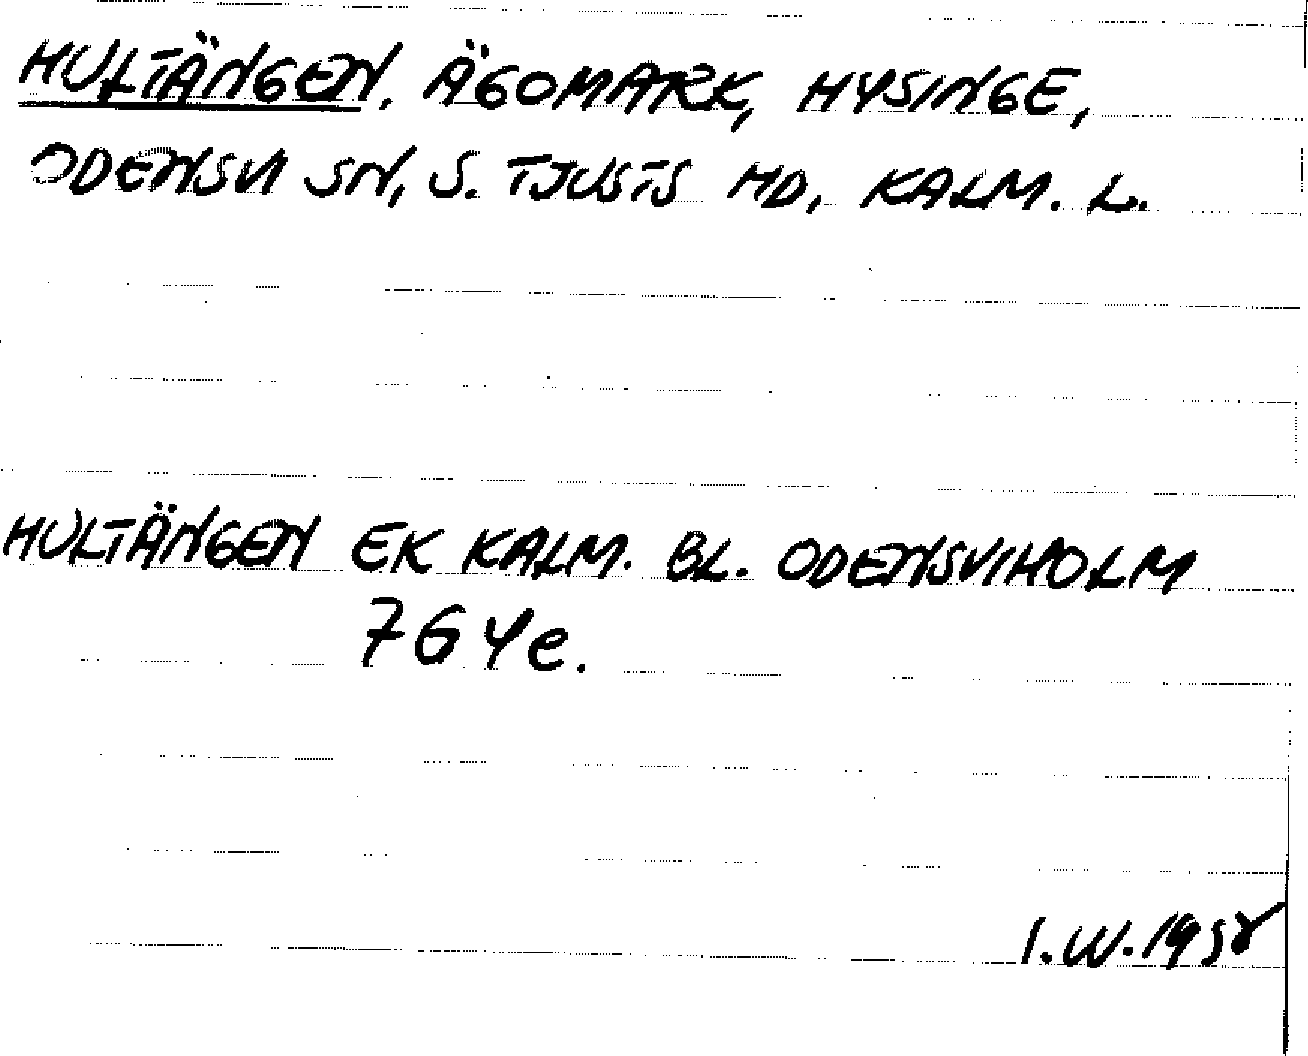 HULTÄNGEN, ÄGOMARK, HYSINGE,
ODENSVI SN, S. TJUSTS HD, KALM. L.
HULTÄNGEN EK KALM. BL. ODENSVIHOLM
7G 4e.
I.W. 1958